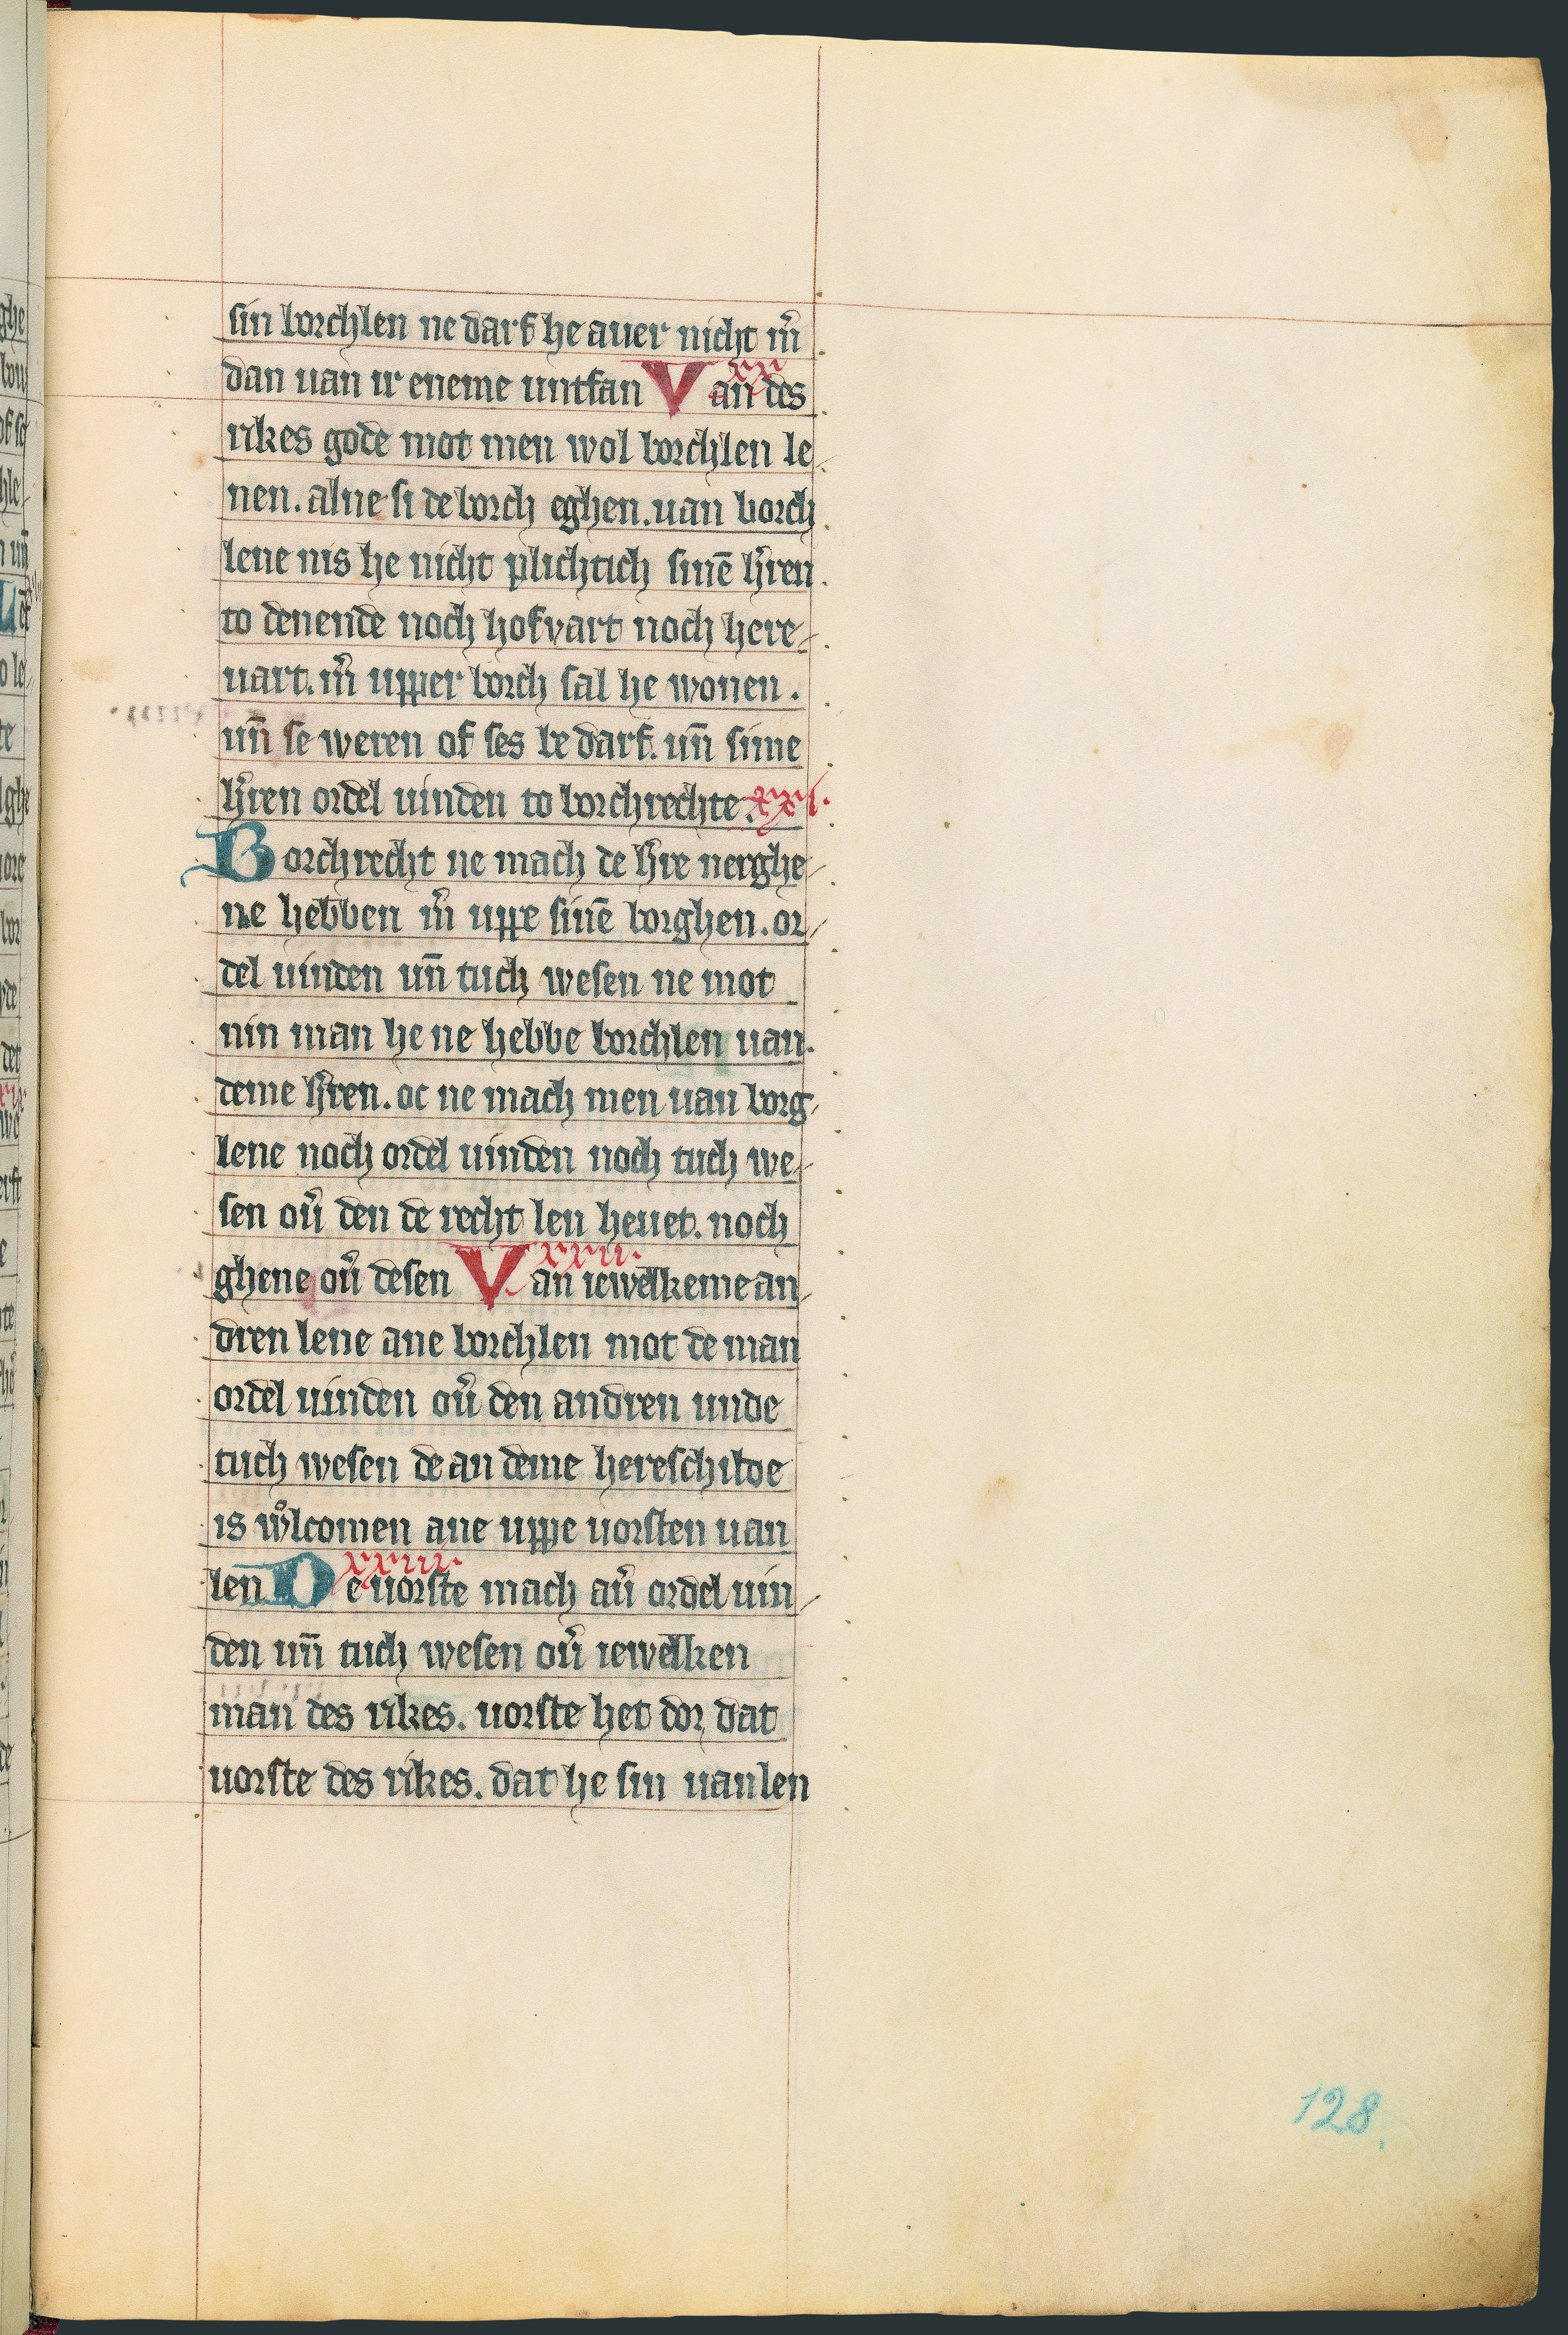 sin borchlen ne darf he auer nicht m̄
dan uan ir eneme untfan Van des xx
rikes gode mot men wol borchlen le
nen. alne si de borch eghen. uan borch
lene nis he nicht plichtich sinē h̄ren
to denende noch hofvart noch here-
uart. m̄ upper borch sal he wonen.
un̄ se weren of ses be darf. un̄ sime
h̄ren ordel uinden to borchrechte. xxi.
Borchrecht ne mach de h̄re nerghe-
ne hebben m̄ uppe sinē borghen. or-
del uinden un̄ tuch wesen ne mot
nin man he ne hebbe borchlen uan.
deme h̄ren. oc ne mach men uan borg-
lene noch ordel uinden noch tuch we-
sen ou̅ den de recht len heuet. noch
ghene ou̅ desen Van iewelkeme an- xxii.
dren lene ane borchlen mot de man
ordel uinden ou̅ den andren unde
tuch wesen de an deme hereschilde
is wͦlcomen ane uppe uorsten uan
len De uorste mach au̅ ordel uin- xxiii.
den un̄ tuch wesen ou̅ iewelken
man des rikes. uorste het dor dat
uorste des rikes. dat he sin uanlen
128.